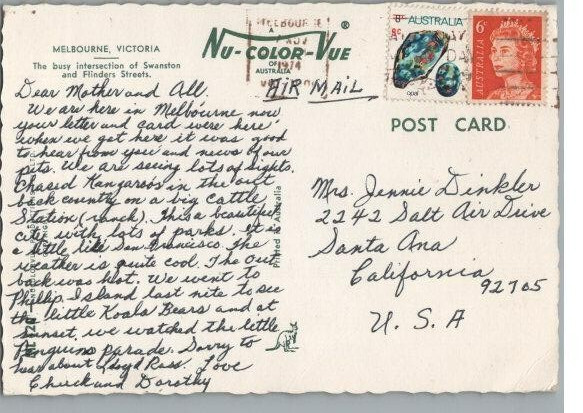 MELBOURNE, VICTORIA
The busy intersection of Swanston
and Flinders Streets.
A
NU-COLOR-VUE®
OF
AUSTRALIA
MELBOURNE
1974
AIR MAIL
8c AUSTRALIA
opal
6c
AUSTRALIA
POST CARD
Dear Mother and All.
We are here in Melbourne now
your letter and card were here
when we get here it was good
to hear from you and news of our
pets. We are seeing lots of sights.
Chased Kangaroos in the out
back country on a big cattle
Station (ranch). This a beautiful
city with lots of parks. It is
a little like San Francisco. The
weather is quite cool. The Out
back was hot. We went to
Phillip Island last nite to see
the little Koala Bears and at
sunset we watched the little
Penguins parade. Sorry to
hear about Lloyd Ross. Love
Chuck and Dorothy
Printed in Australia
Mrs. Jennie Dinkler
2242 Salt Air Drive
Santa Ana
California
92705
U. S. A